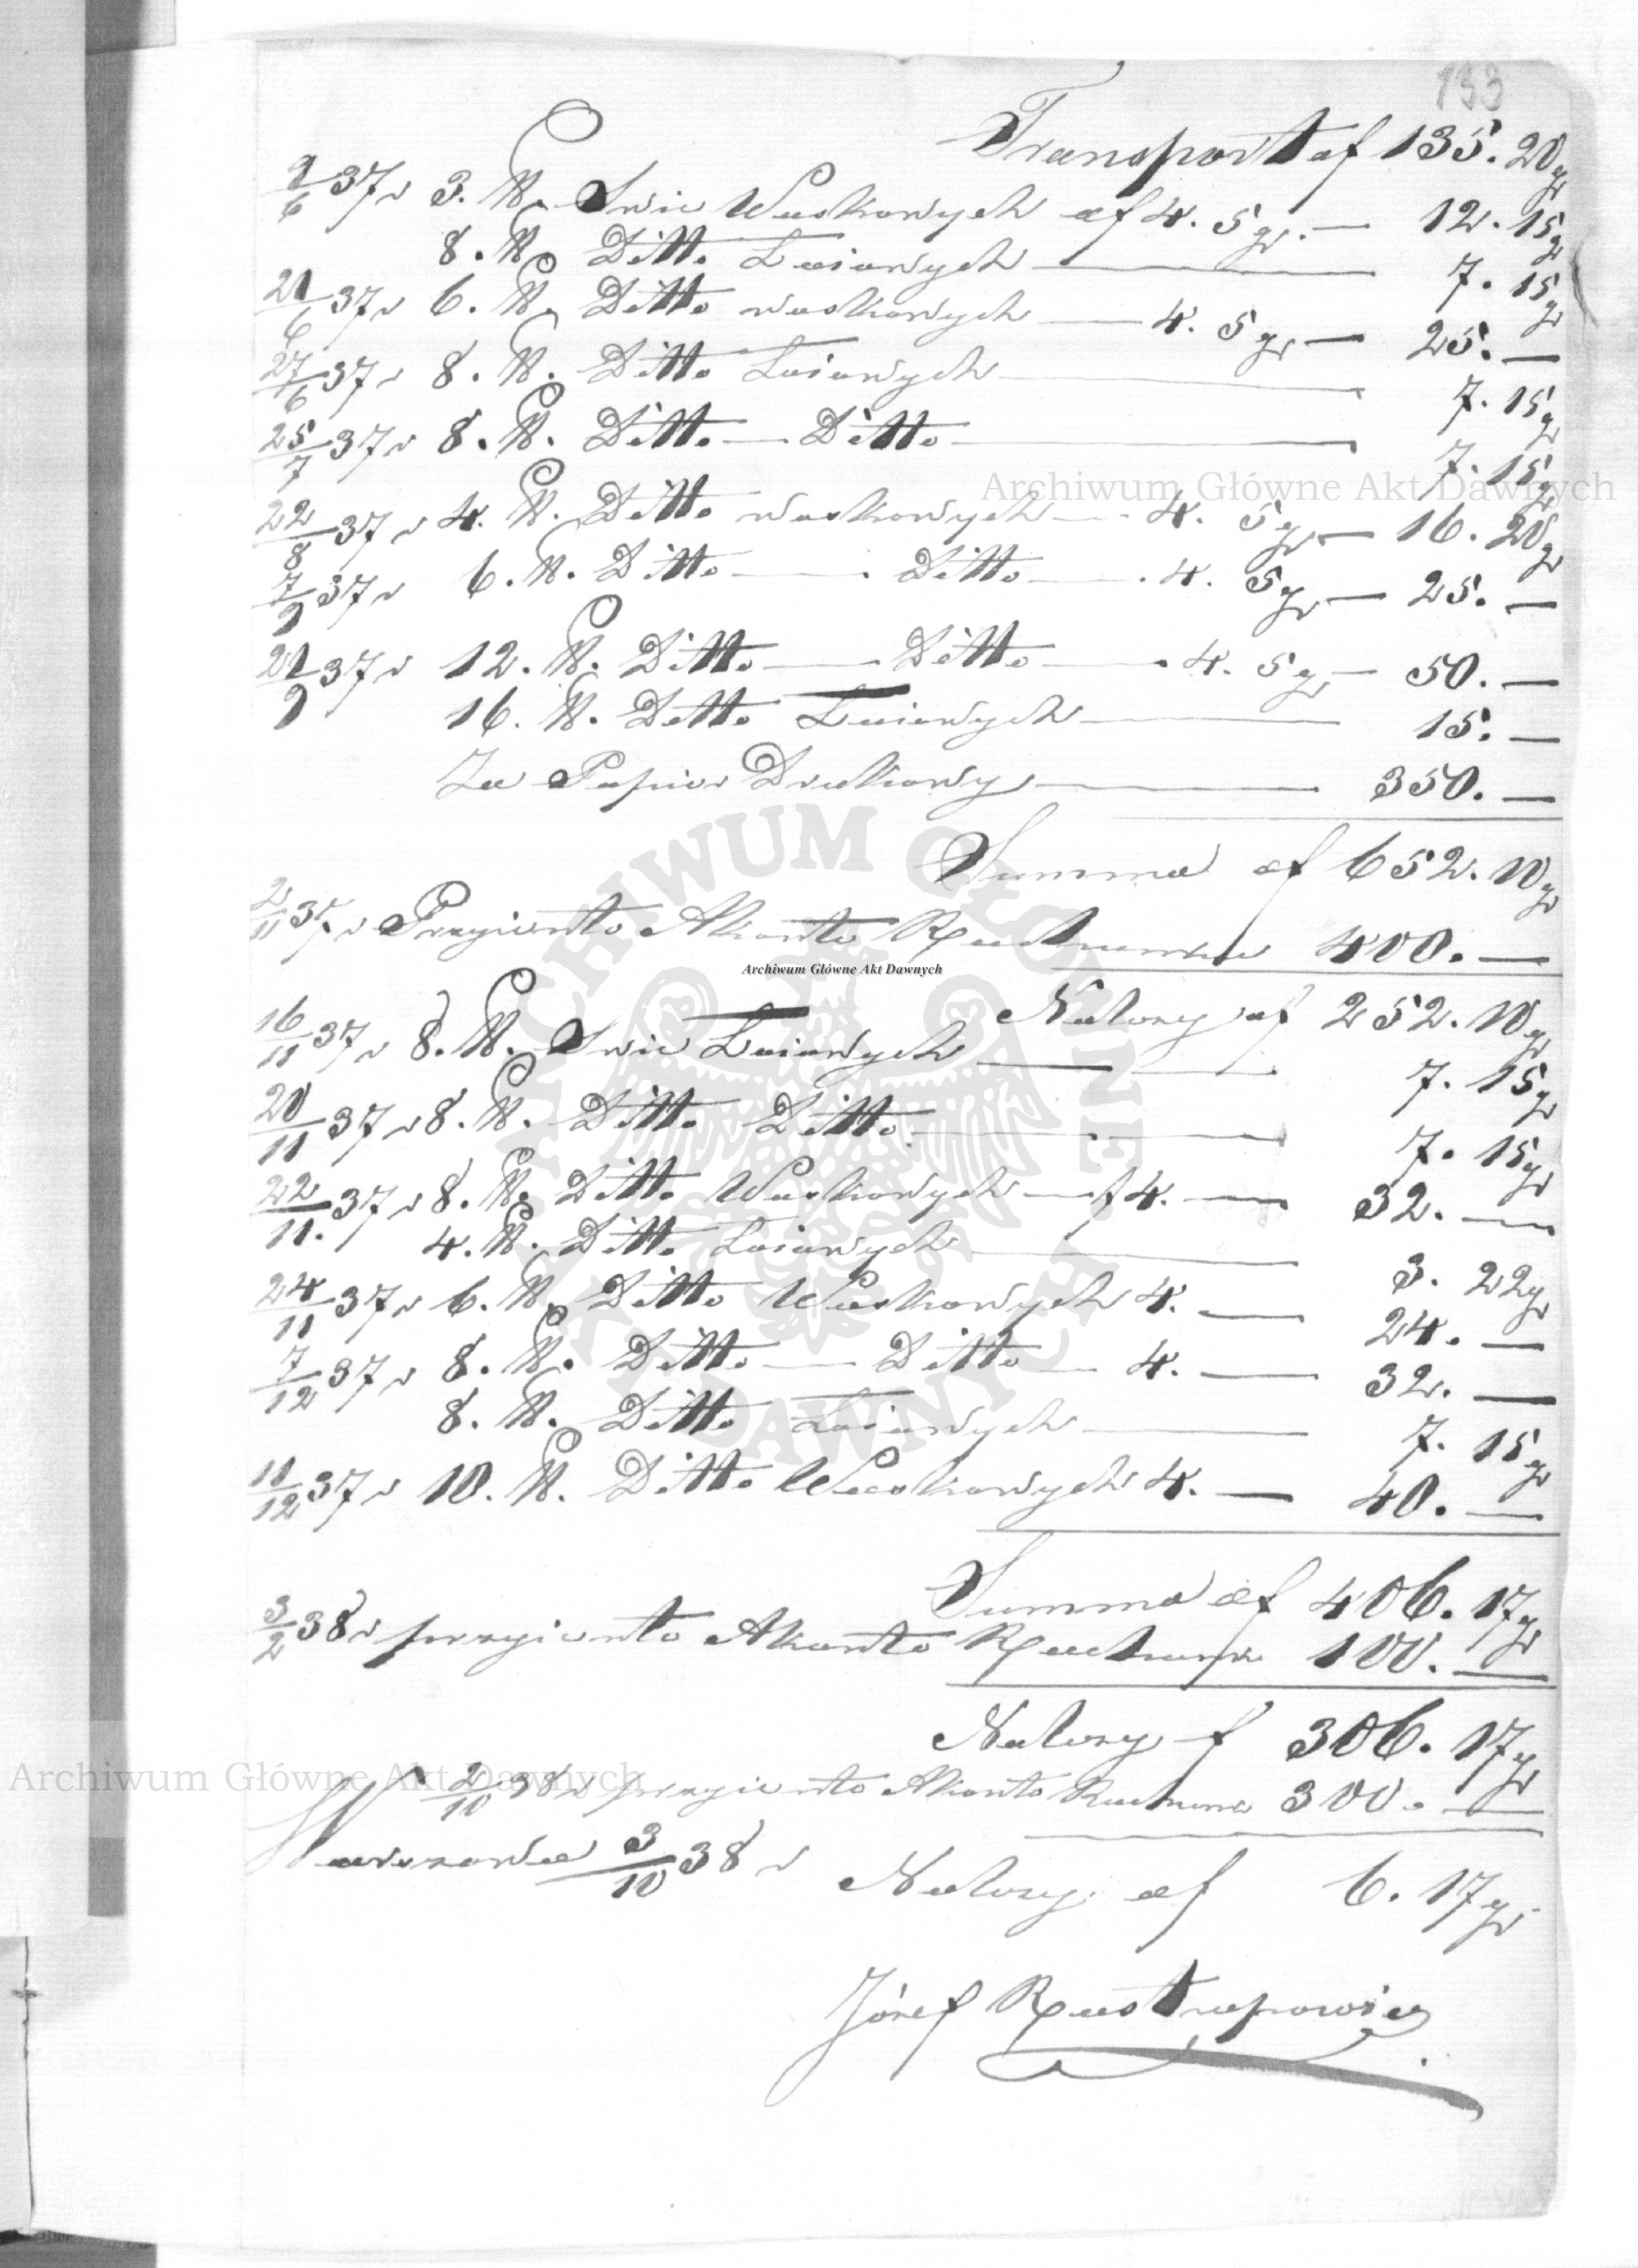 133
Transport af 135. 20 gr
9/6 37 r 3. ℔. Swic Woskowych af 4. 5 gr. — 12. 15 gr
8. ℔. Ditto Loiowych — 7. 15 gr
21/6 37 r 6. ℔. Ditto woskowych — 4. 5 gr — 25. —
27/6 37 r 8. ℔. Ditto Loiowych — 7. 15 gr
25/7 37 r 8. ℔. Ditto — Ditto — 7. 15 gr
22/8 37 r 4. ℔. Ditto woskowych — 4. 5 gr — 16. 20 gr
7/9 37 r 6. ℔. Ditto — Ditto — 4. 5 gr — 25. —
21/9 37 r 12. ℔. Ditto — Ditto — 4. 5 gr — 50. —
16. ℔. Ditto Loiowych — 15. —
Za Papier Drukowy — 350. —
Summa af 652. 10 gr
2/11 37 r Przyionto Akonto Rachunku 400. —
Należy af 252. 10 gr
16/11 37 r 8. ℔. Swic Loiowych — 7. 15 gr
20/11 37 r 8. ℔. Ditto Ditto — 7. 15 gr
22/11. 37 r 8. ℔. Ditto Woskowych — f 4. — 32. —
4. ℔. Ditto Loiowych — 3. 22 gr
24/11 37 r 6. ℔. Ditto Woskowych 4. — 24. —
7/12 37 r 8. ℔. Ditto — Ditto — 4. — 32. —
8. ℔. Ditto Loiowych — 7. 15 gr
11/12 37 r 10. ℔. Ditto Woskowych 4. — 40. —
Summa af 406. 17 gr
3/2 38 r przyionto Akonto Rachunku 100. —
Należy f 306. 17 gr
2/10 38 r przyionto Akonto Rachunku 300. —
Warszawa 3/10 38 r Należy af 6. 17 gr
Józef
Archiwum Główne Akt Dawnych
ARCHIWUM GŁÓWNE AKT DAWNYCH
Archiwum Główne Akt Dawnych
Archiwum Główne Akt Dawnych